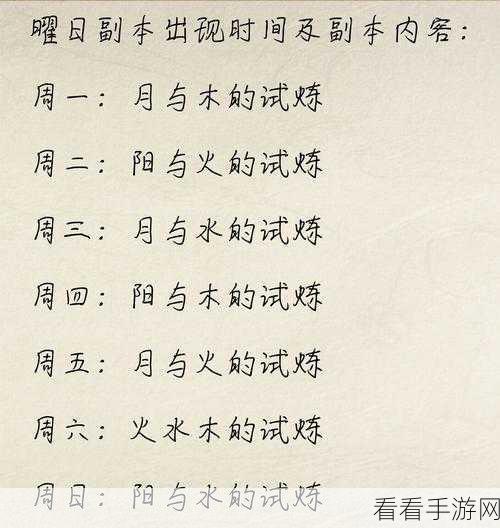 曜日副本出现时间及副本内容：
周一：月与木的试炼
周二：阳与火的试炼
周三：月与水的试炼
周四：阳与木的试炼
周五：月与火的试炼
周六：火水木的试炼
周日：阳与水的试炼
看看手游网